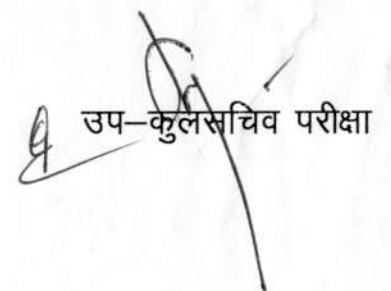 उप–कुलसचिव परीक्षा